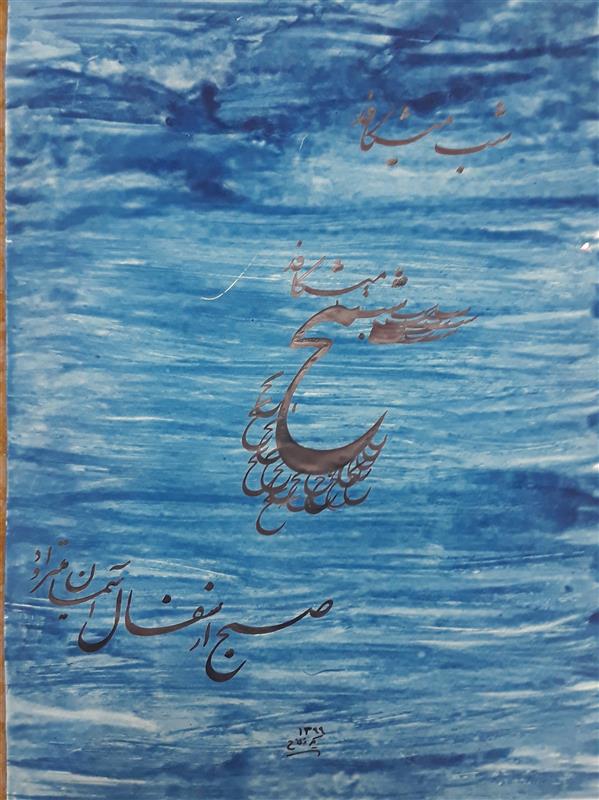 شب میشکافد
میشکافد
صبح از سفال آسمان میتراود
۱۳۹۹